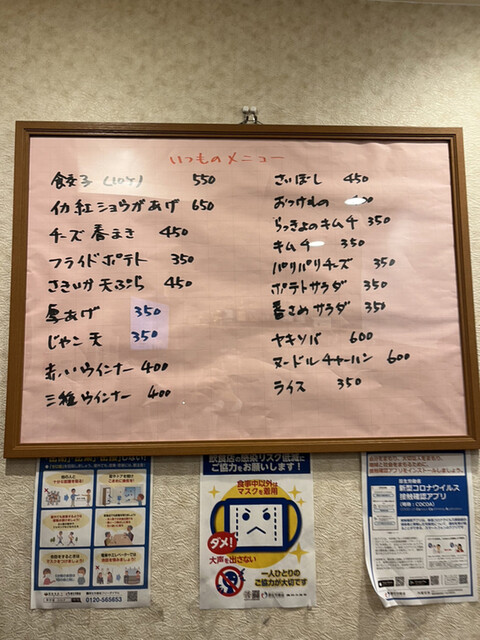 いつものメニュー
餃子(10ケ) 550
イカ紅ショウがあげ 650
チーズ春まき 450
フライドポテト 350
さきいか天ぷら 450
厚あげ 350
じゃこ天 350
赤いウインナー 400
三種ウインナー 400
さいぼし 450
おつけもの
らっきょのキムチ 350
キムチ 350
パリパリチーズ 350
ポテトサラダ 350
春さめサラダ 350
ヤキソバ 600
ヌードルチャーハン 600
ライス 350
0120-565653
飲食店の感染リスク低減に
ご協力をお願いします!
食事中以外は
マスクを着用
ダメ!
大声を出さない
一人ひとりの
ご協力が大切です
厚生労働省
新型コロナウイルス
接触確認アプリ
(略称:COCOA)